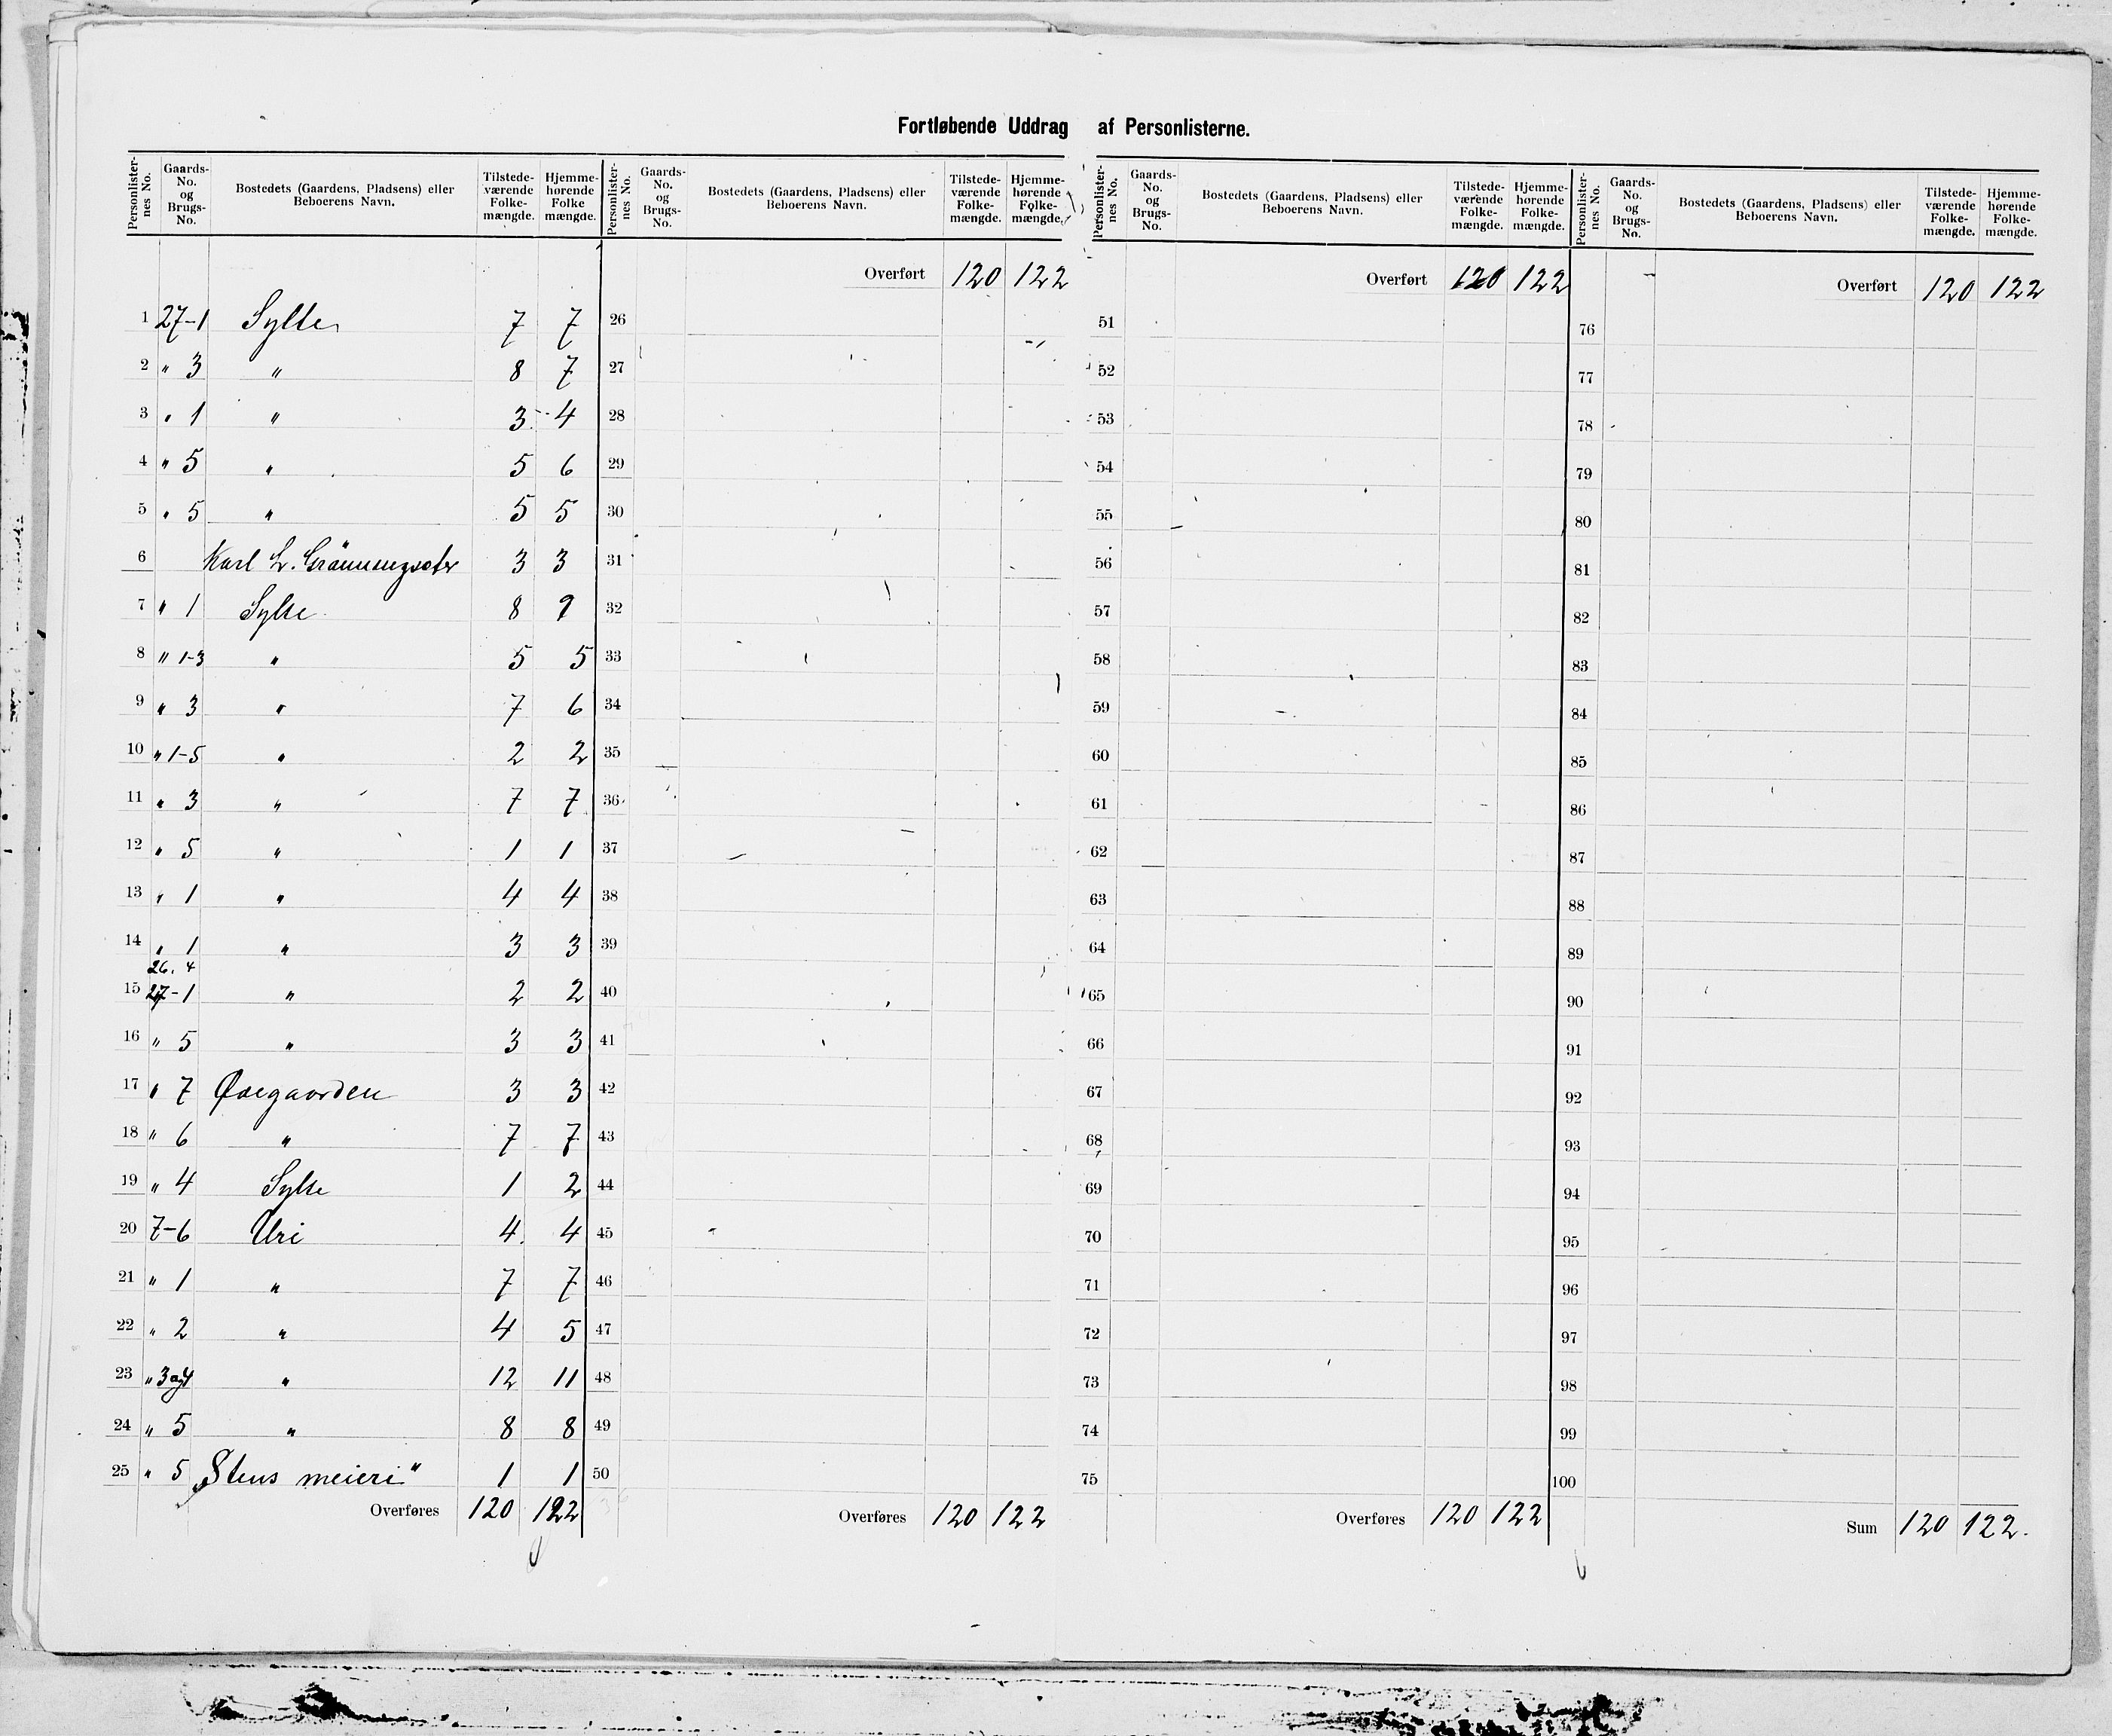 Fortløbende Uddrag af Personlisterne.
Personlisternes No. Gaards-No. og Brugs-No. Bostedets (Gaardens, Pladsens) eller Beboerens Navn. Tilstedeværende Folkemængde. Hjemmehørende Folke mængde.
Personlisternes No. Gaards-No. og Brugs-No. Bostedets (Gaardens, Pladsens) eller Beboerens Navn. Tilstedeværende Folkemængde. Hjemmehørende Folkemængde.
Personlisternes No. Gaards-No. og Brugs-No. Bostedets (Gaardens, Pladsens) eller Beboerens Navn. Tilstedeværende Folkemængde. Hjemmehørende Folkemængde.
Personlisternes No. Gaards-No. og Brugs-No. Bostedets (Gaardens, Pladsens) eller Beboerens Navn. Tilstedeværende Folkemængde. Hjemmehørende Folkemængde.
1 27-1 Sylte 7 7
2 " 3 " 8 7
3 " 1 " 3 4
4 " 5 " 5 6
5 " 5 " 5 5
6 Karl L. 3 3
7 " 1 Sylte 8 9
8 " 1-3 " 5 5
9 " 3 " 7 6
10 " 1-5 " 2 2
11 " 3 " 7 7
12 " 5 " 1 1
13 " 1 " 4 4
14 " 1 " 3 3
26. 4
15 27-1 " 2 2
16 " 5 " 3 3
17 " 7 Ødegaarden 3 3
18 " 6 " 7 7
19 " 4 Sylte 1 2
20 7-6 Uri 4 4
21 " 1 " 7 7
22 " 2 " 4 5
23 " 3og4 " 12 11
24 " 5 " 8 8
25 " 5 „Stens meieri" 1 1
Overføres 120 122
Overført 120 122
26
27
28
29
30
31
32
33
34
35
36
37
38
39
40
41
42
43
44
45
46
47
48
49
50
Overføres 120 122
Overført 120 122
51
52
53
54
55
56
57
58
59
60
61
62
63
64
65
66
67
68
69
70
71
72
73
74
75
Overføres 120 122
Overført 120 122
76
77
78
79
80
81
82
83
84
85
86
87
88
89
90
91
92
93
94
95
96
97
98
99
100
Sum 120 122.